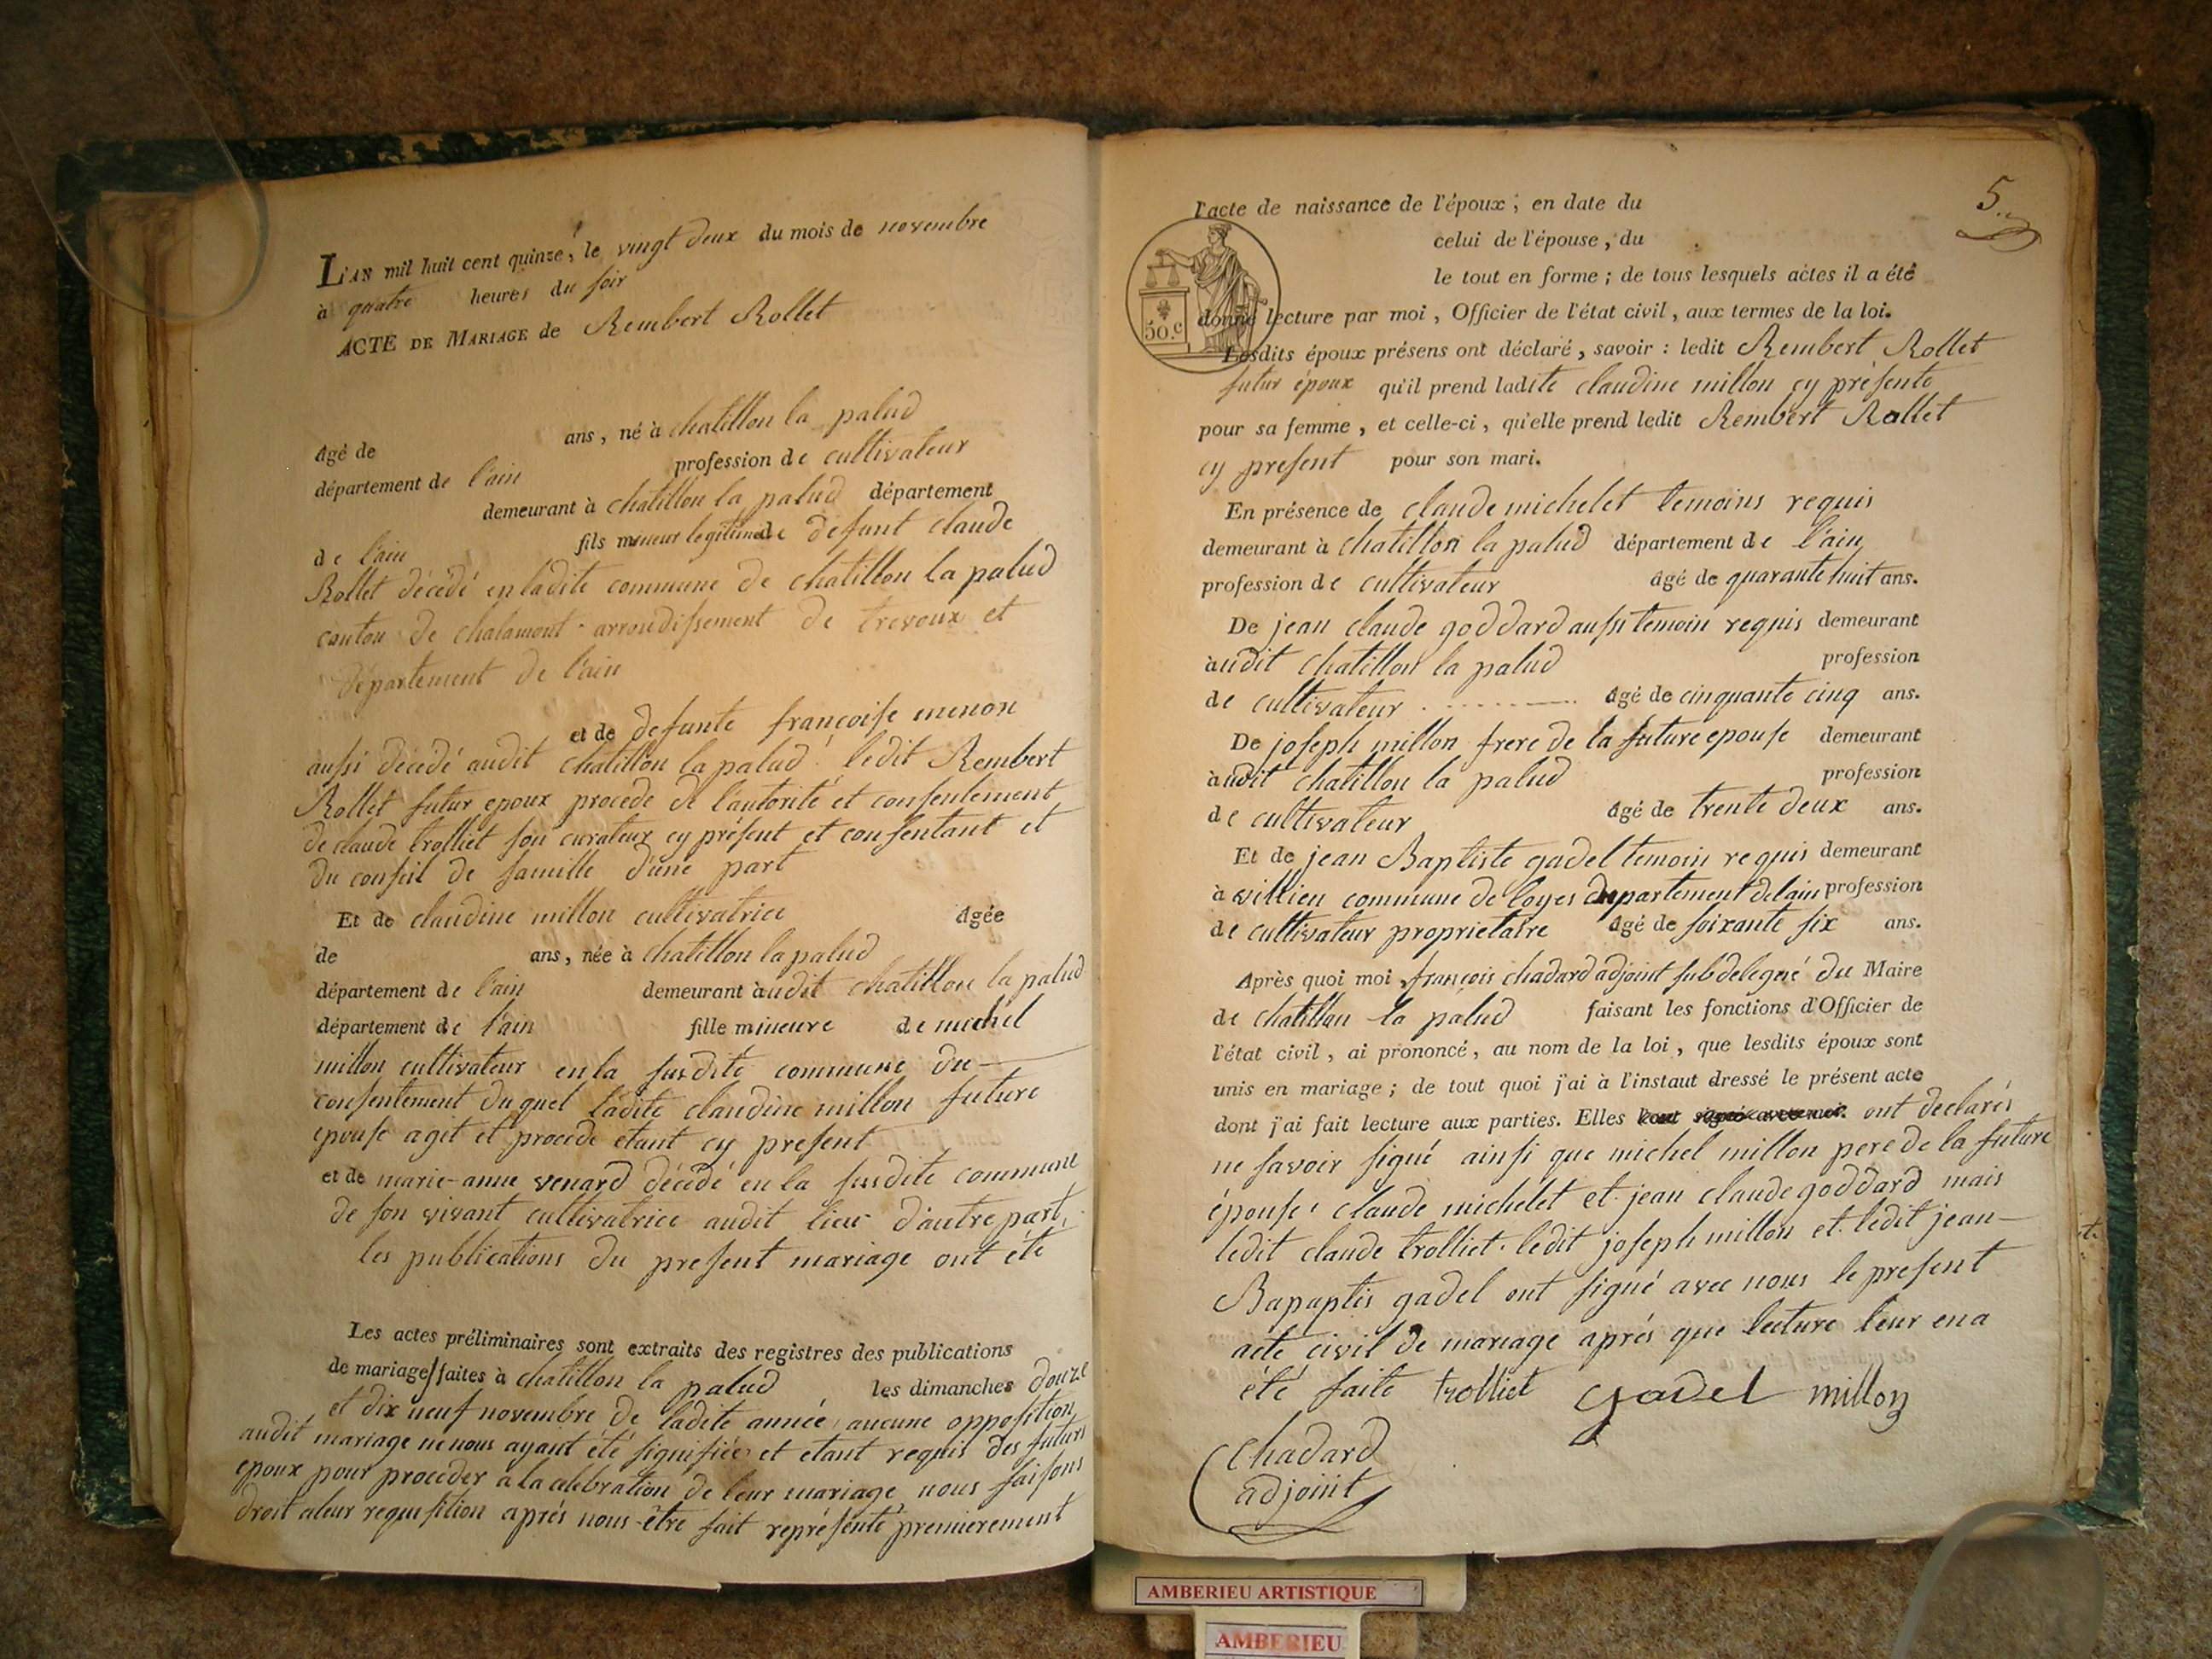 L'AN mil huit cent quinze, le vingt deux du mois de novembre
à quatre heures du soir
ACTE DE MARIAGE de Rembert Rollet
Agé de ans, né à chatillon la palud
département de l'ain profession de cultivateur
demeurant à chatillon la palud département
de l'ain fils mineur legitime de defunt claude
Rollet décédé en ladite commune de chatillon la palud
canton de chalamont arrondissement de trevoux et
département de l'ain
et de defunte françoise menon
aussi décédé audit chatillon la palud ledit Rembert
Rollet futur epoux procede de l'autorité et consentement
de claude trolliet son curateur cy présent et consentant et
du conseil de famille d'une part
Et de claudine millon cultivatrice Agée
de ans, née à chatillon la palud
département de l'ain demeurant audit chatillon la palud
département de l'ain fille mineure de michel
millon cultivateur en la susdite commune du
consentement duquel ladite claudine millon future
epouse agit et procede etant cy present
et de marie-anne venard décédé en la susdite commune
de son vivant cultivatrice audit lieu d'autre part,
les publications du present mariage ont été
Les actes préliminaires sont extraits des registres des publications
de mariage faites à chatillon la palud les dimanches douze
et dix neuf novembre de ladite année, aucune opposition
audit mariage ne nous ayant été signifiée et etant requis des futurs
epoux pour proceder a la celebration de leur mariage, nous faisons
droit a leur requisition après nous être fait représenté premierement
5.
l'acte de naissance de l'époux; en date du
celui de l'épouse, du
le tout en forme; de tous lesquels actes il a été
50.c
donné lecture par moi, Officier de l'état civil, aux termes de la loi.
Lesdits époux présens ont déclaré, savoir: ledit Rembert Rollet
futur époux qu'il prend ladite claudine millon cy présente
pour sa femme, et celle-ci, qu'elle prend ledit Rembert Rollet
cy present pour son mari.
En présence de claude michelet temoins requis
demeurant à chatillon la palud département de l'ain
profession de cultivateur âgé de quarante huit ans.
De jean claude goddard aussi temoin requis demeurant
audit chatillon la palud profession
de cultivateur âgé de cinquante cinq ans.
De joseph millon frere de la future epouse demeurant
audit chatillon la palud profession
de cultivateur âgé de trente deux ans.
Et de jean Baptiste gadel temoin requis demeurant
à villieu commune de loyes departement de lain profession
de cultivateur proprietaire âgé de soixante six ans.
Après quoi moi, françois chadard adjoint subdelegué du Maire
de chatillon la palud faisant les fonctions d'Officier de
l'état civil, ai prononcé, au nom de la loi, que lesdits époux sont
unis en mariage; de tout quoi j'ai à l'instaut dressé le présent acte
dont j'ai fait lecture aux parties. Elles ont declarés
ne savoir signé ainsi que michel millon pere de la future
épouse, claude michelet et jean claude goddard mais
ledit claude trolliet. ledit joseph millon et ledit jean-
Bapaptis gadel ont signé avec nous le present
acte civil de mariage aprés que lecture leur en a
été faite trolliet gadel millon
chadard
adjoint
AMBERIEU ARTISTIQUE
AMBERIEU